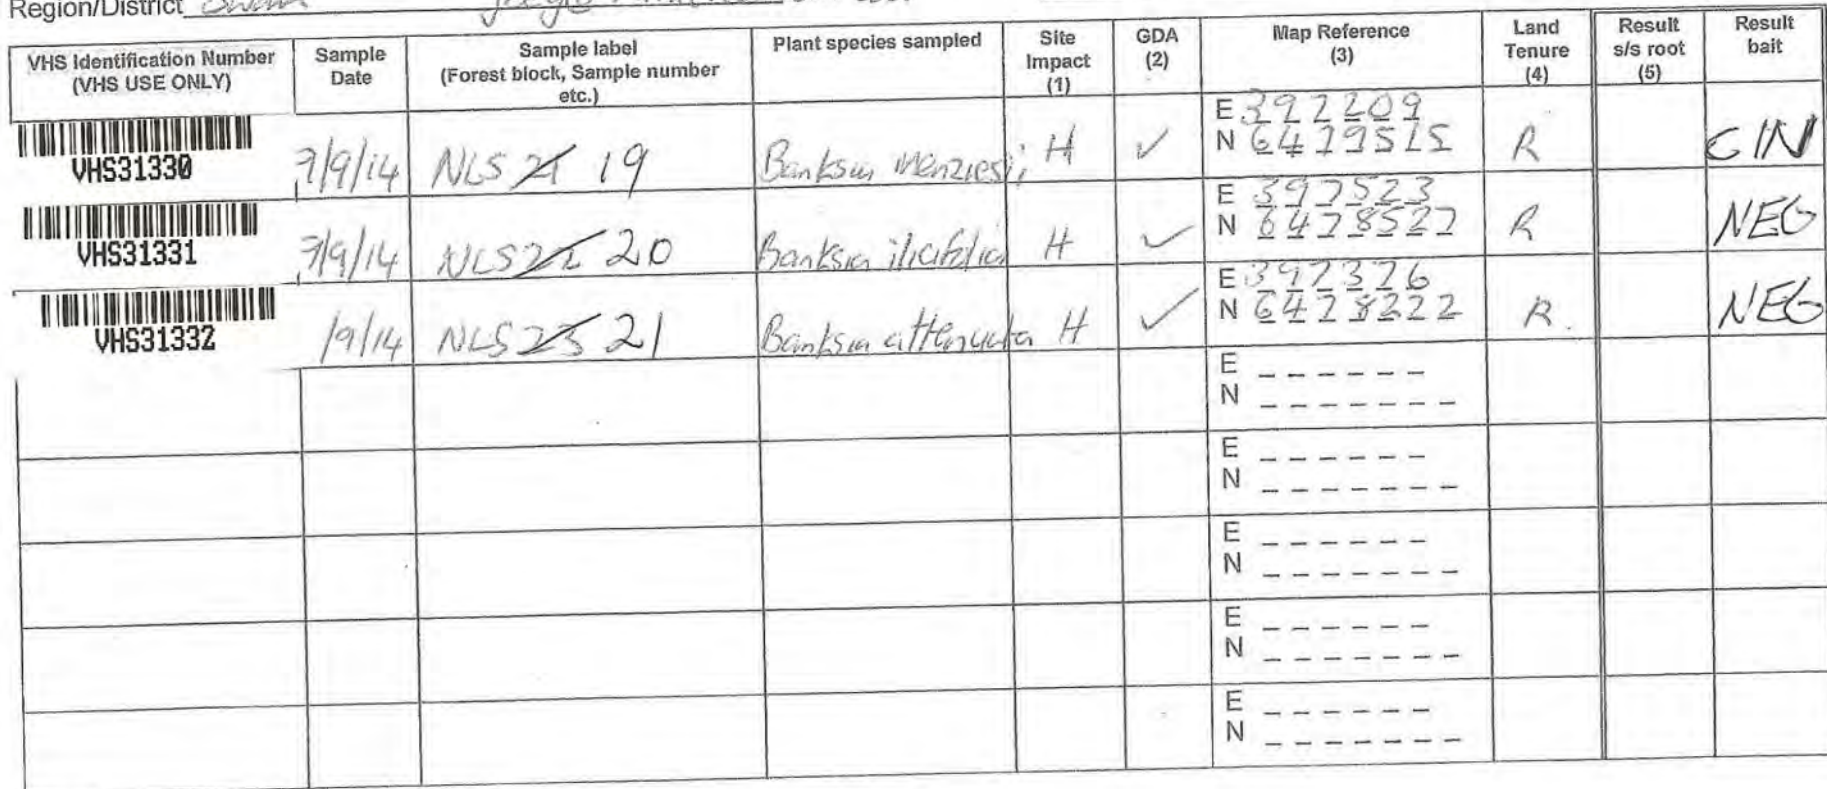 Region/District Swan
VHS Identification Number (VHS USE ONLY) | Sample Date | Sample label (Forest block, Sample number etc.) | Plant species sampled | Site Impact (1) | GDA (2) | Map Reference (3) | Land Tenure (4) | Result s/s root (5) | Result bait
VHS31330 | 9/9/14 | NLS 19 | Banksia menziesii | H | ✓ | E 392209 N 6479515 | R | | CIN
VHS31331 | 9/9/14 | NLS 20 | Banksia ilicifolia | H | ✓ | E 397523 N 6478527 | R | | NEG
VHS31332 | /9/14 | NLS 21 | Banksia attenuata | H | ✓ | E 397376 N 6478222 | R. | | NEG
E _ _ _ _ _ _
N _ _ _ _ _ _ _
E _ _ _ _ _ _
N _ _ _ _ _ _ _
E _ _ _ _ _ _
N _ _ _ _ _ _ _
E _ _ _ _ _ _
N _ _ _ _ _ _ _
E _ _ _ _ _ _
N _ _ _ _ _ _ _